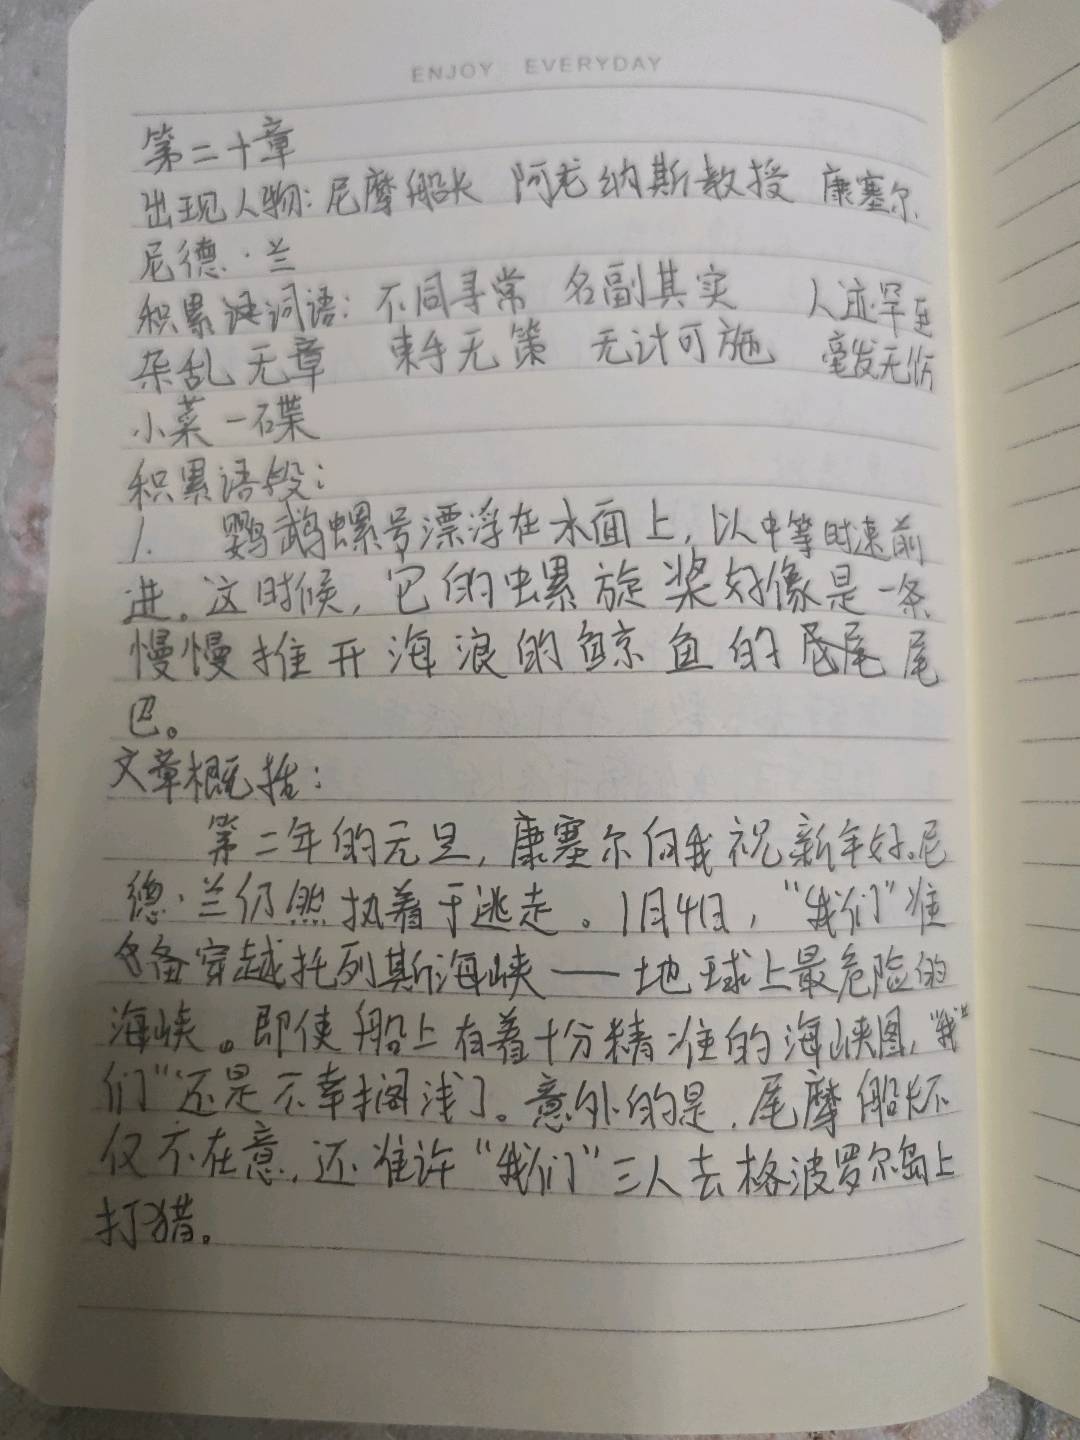 ENJOY EVERYDAY
第二十章
出现人物：尼摩船长 阿龙纳斯教授 康塞尔
尼德·兰
积累词语：不同寻常 名副其实 人迹罕至
杂乱无章 束手无策 无计可施 毫发无伤
小菜一碟
积累语段：
1. 鹦鹉螺号漂浮在水面上，以中等时速前
进。这时候，它的螺旋桨好像是一条
慢慢推开海浪的鲸鱼的尾
巴。
文章概括：
第二年的元旦，康塞尔向我祝新年好。尼
德·兰仍然执着于逃走。1月4日，“我们”准
备穿越托列斯海峡——地球上最危险的
海峡。即使船上有着十分精准的海峡图，“我
们”还是不幸搁浅了。意外的是，尾摩船长不
仅不在意，还准许“我们”三人去格波罗尔岛上
打猎。